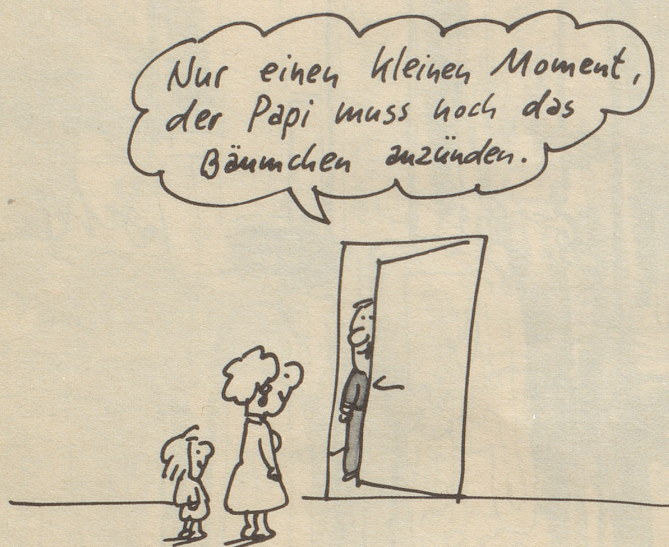 Nur einen kleinen Moment,
der Papi muss noch das
Bäumchen anzünden.